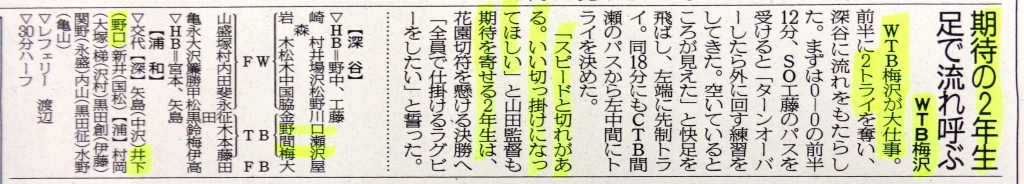 期待の2年生
足で流れ呼ぶ
WTB梅沢
WTB梅沢が大仕事。
前半に2トライを奪い、
深谷に流れをもたらし
た。まずは0―0の前半
12分、SO工藤のパスを
受けると「ターンオーバ
ーしたら外に回す練習を
してきた。空いていると
ころが見えた」と快足を
飛ばし、左端に先制トラ
イ。同18分にもCTB間
瀬のパスから左中間にト
ライを決めた。
「スピードと切れがあ
る。いい切っ掛けになっ
てほしい」と山田監督も
期待を寄せる2年生は、
花園切符を懸ける決勝へ
「全員で仕掛けるラグビ
ーをしたい」と誓った。
【深谷】
▽HB=野中、工藤
崎 村井場沢松野川口瀬沢屋
岩森木松木中国脇金野間梅大
FW TB FB
山盛塚村内田斐永田征木本藤田
亀永大沢簾勝甲松黒鈴梅伊高
▽HB=宮本、矢島
【浦和】
▽交代【深】矢島(中沢)井下
(野口)新井(国松)【浦】村岡
(大塚)梯(沢村)黒田創(伊藤)
関野(永盛)内山(黒田征)水野
(亀山)
▽レフェリー 渡辺
▽30分ハーフ